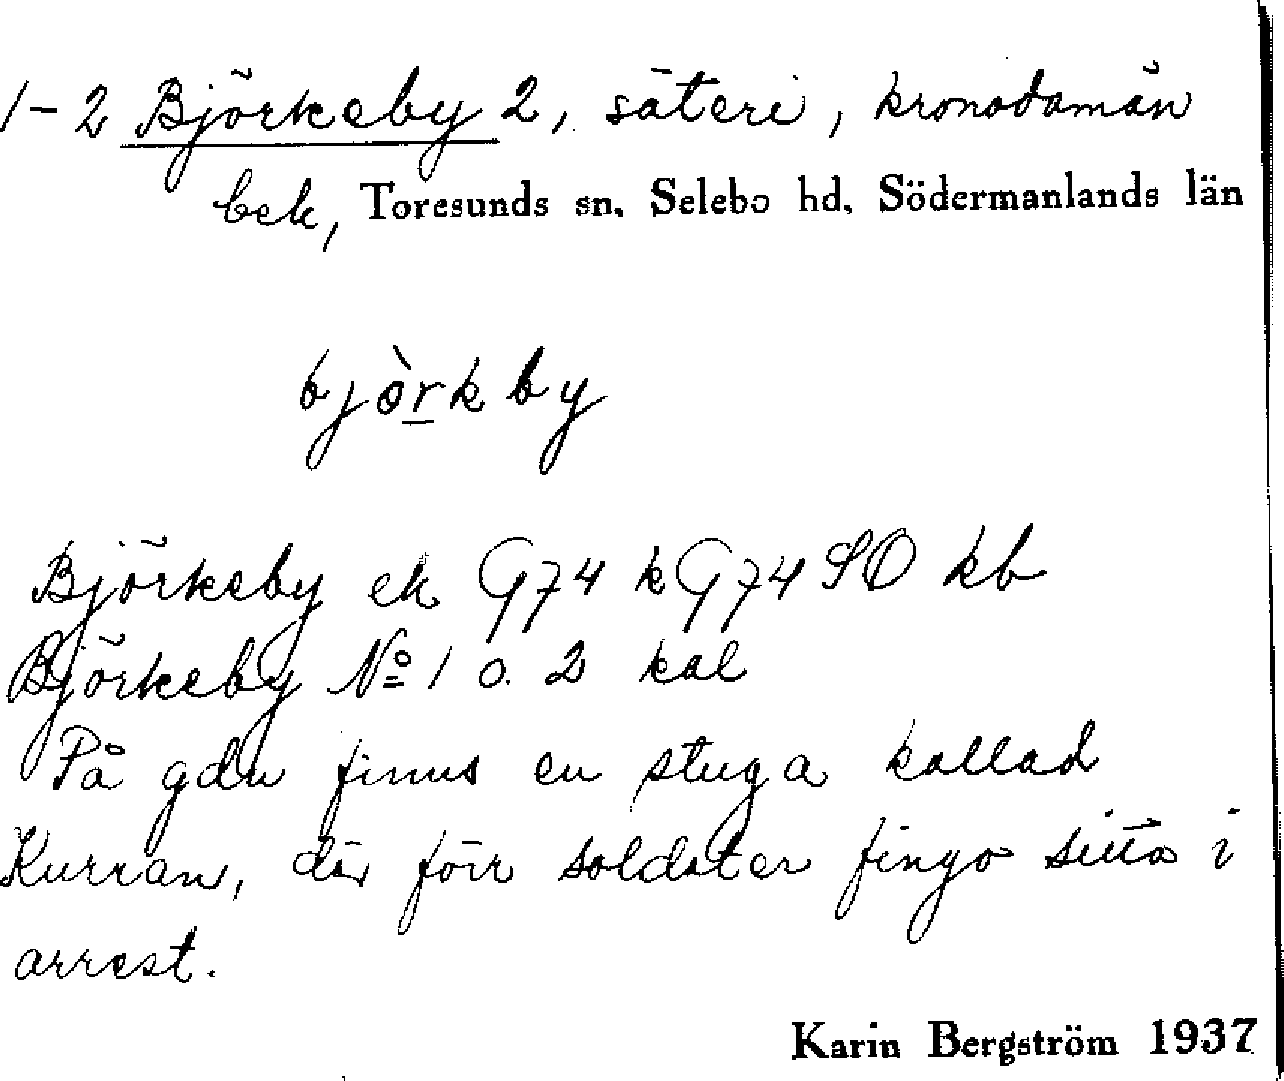 1-2 Björkeby 2, säteri, kronodomän
bek, Toresunds sn. Selebo hd. Södermanlands län
bjòrkby
Björkeby ek G74 k G74 SO kb
Björkeby No 1 o. 2 kal
På gdn finns en stuga kallad
Kurran, där förr soldater fingo sitta i
arrest.
Karin Bergström 1937